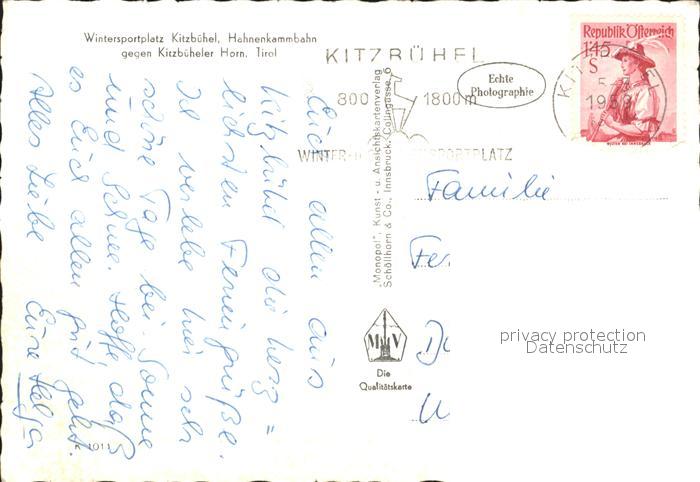 Wintersportplatz Kitzbühel, Hahnenkammbahn
gegen Kitzbüheler Horn. Tirol
KITZBÜHEL
800 1800m
WINTER- SPORTPLATZ
Echte
Photographie
Republik Österreich
1.45
S
KITZBÜHEL
"Monopol", Kunst - u. Ansichtskartenverlag
Schöllhorn & Co., Innsbruck, Colingasse 6
Euch allen aus
Kitzbühel die herz=
lichsten Feriengrüße.
Ich verlebe hier sehr
schöne Tage bei Sonne
und Schnee. Hoffe, daß
es Euch allen gut geht.
Alles Liebe Eure Helga
Familie
Fer.
M V
Die
Qualitätskarte
K 1011
privacy protection
Datenschutz